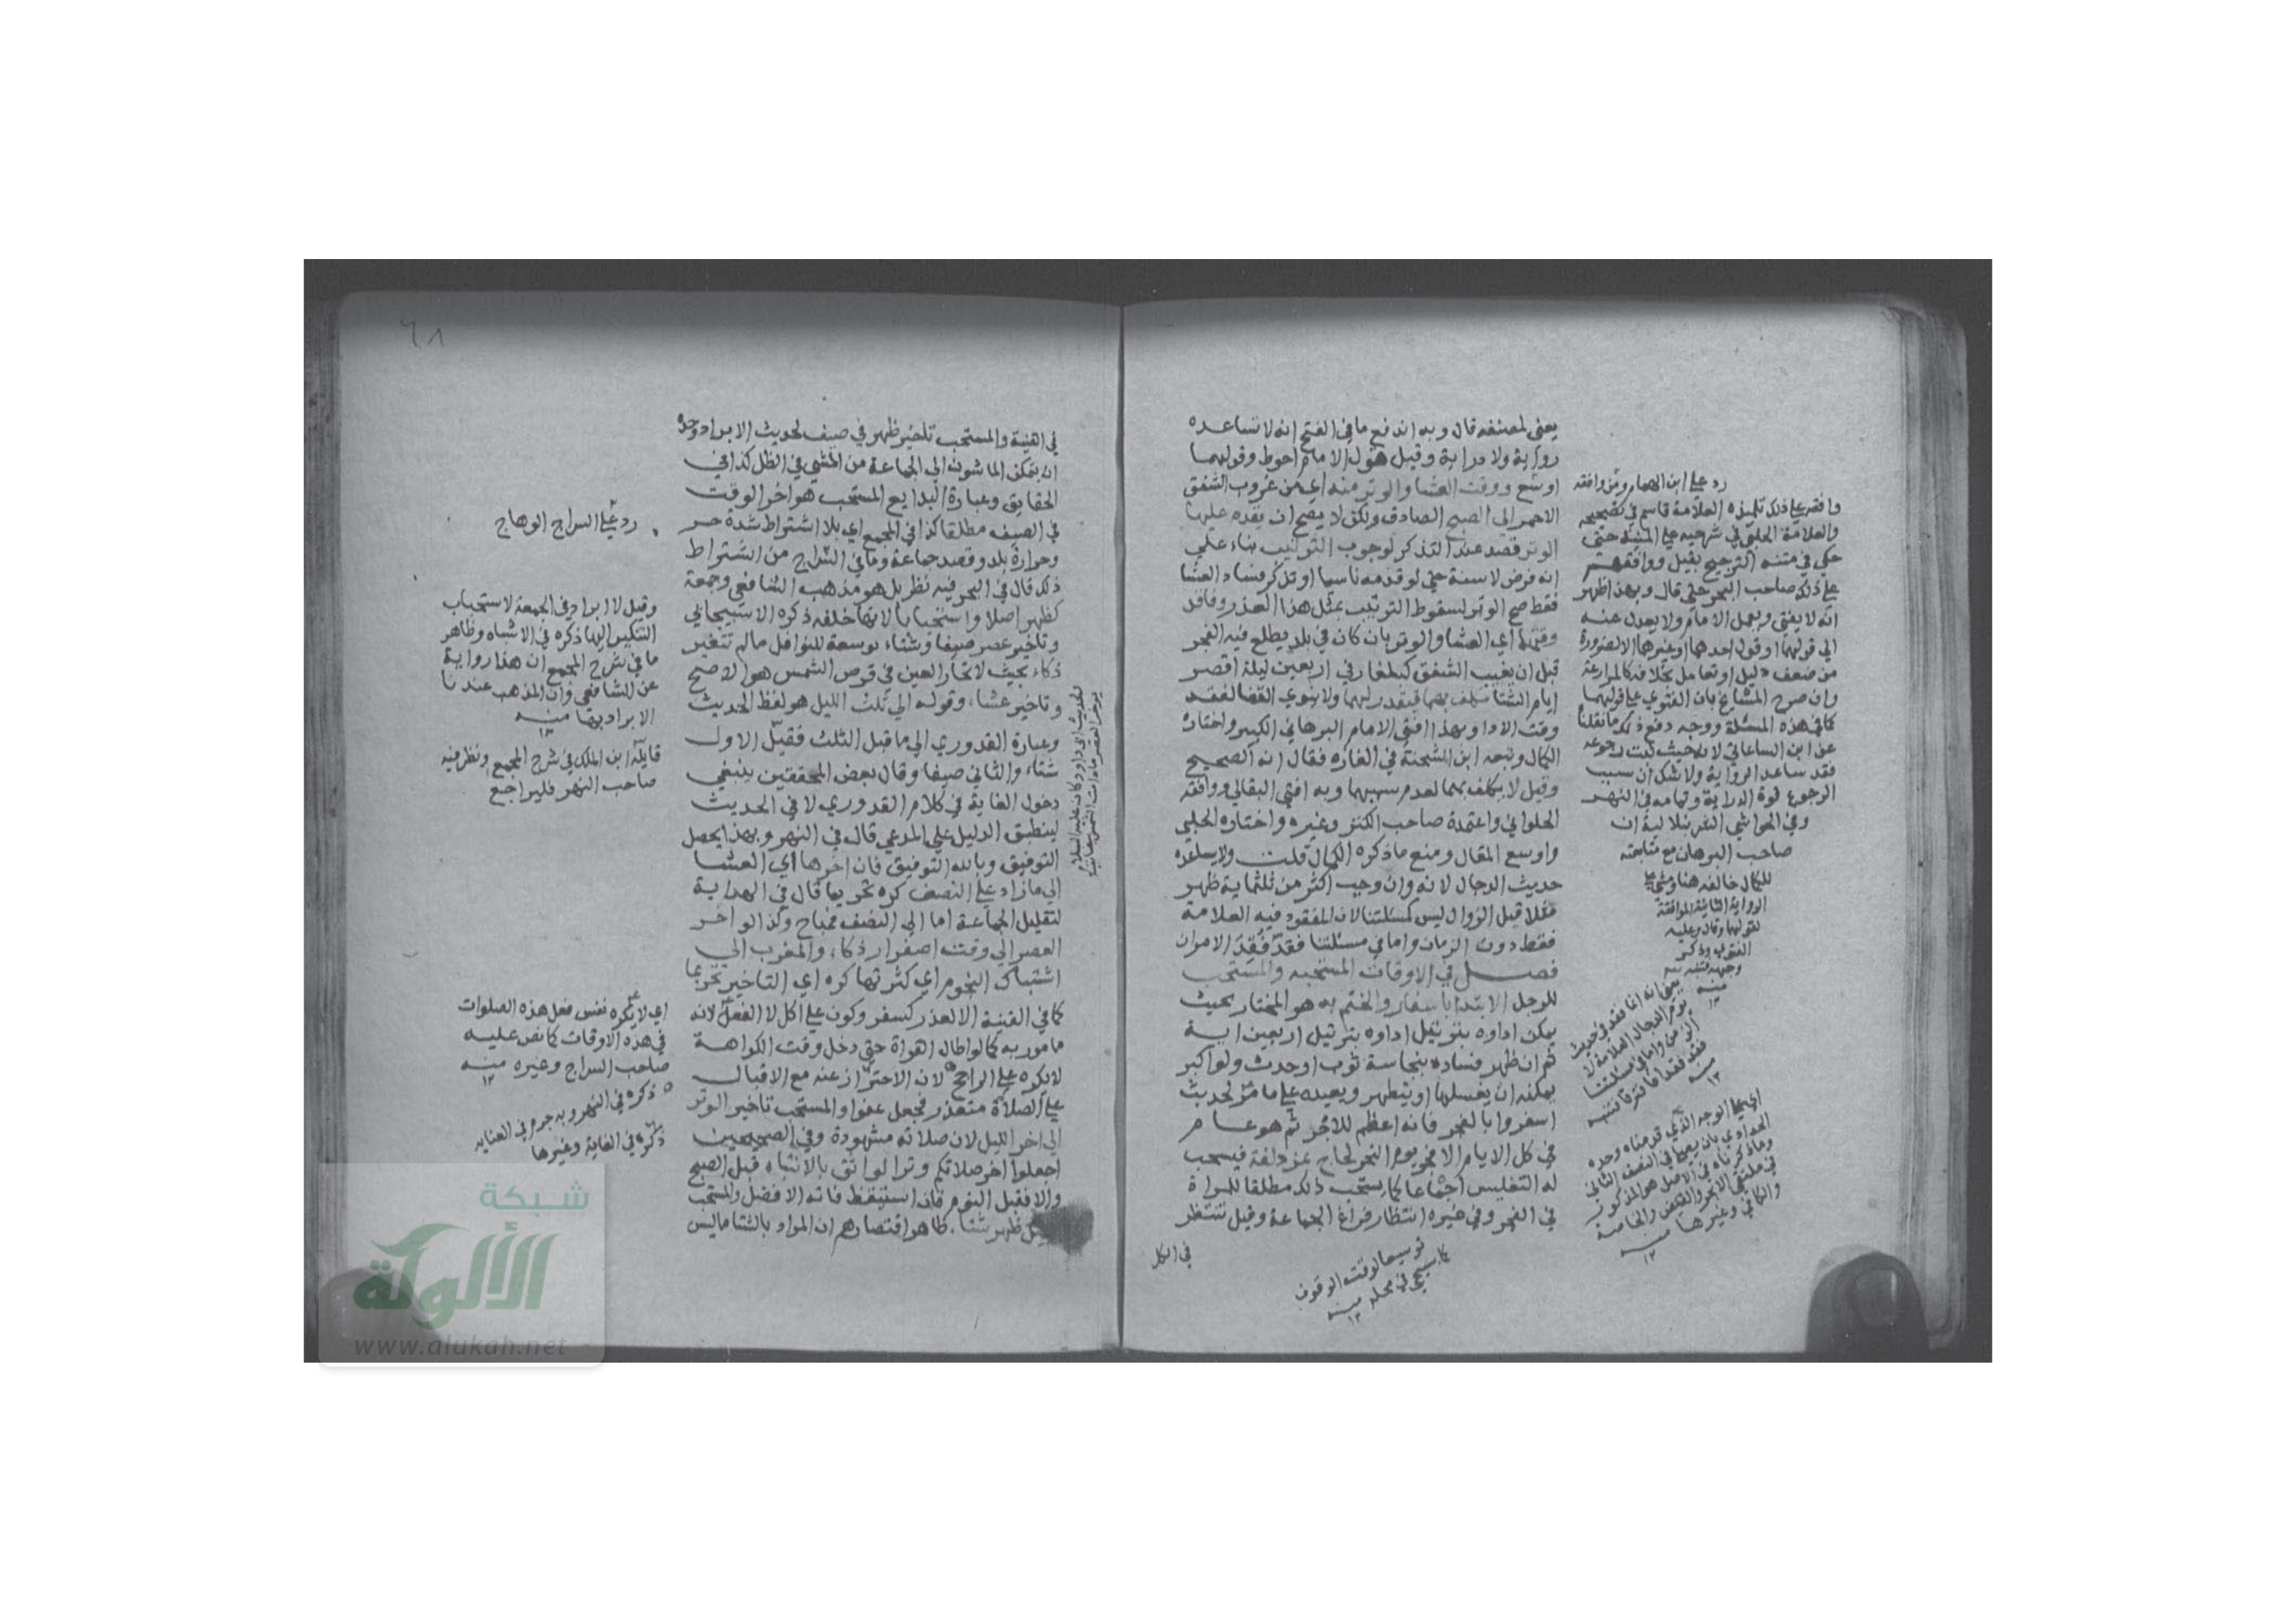 يعني لمصنفه قال وبه اندفع ما في الفتح انه لا تساعده
رواية ولا دراية وقيل قول الامام احوط وقولهما
اوسع ووقت العشا والوتر منه اي من غروب الشفق
الاحمر الي الصبح الصادق ولكن لا يصح ان يقدم عليها
الوتر قصد عند التذكر لوجوب الترتيب بناء علي
انه فرض لا سنة حتي لو قدمه ناسيا او تذكر فساد العشا
فقط صح الوتر لسقوط الترتيب بمثل هذا العذر وفاقد
وقتهما اي العشا والوتر بان كان في بلد يطلع فيه الفجر
قبل ان يغيب الشفق كبلغار في اربعين ليلة اقصر
ايام الشتا مكلف بهما فيقدر لهما ولا ينوي القضا لفقد
وقت الادا وبهذا افتي الامام البرهاني الكبير واختاره
الكمال وتبعه ابن الشحنة في الغازه فقال انه الصحيح
وقيل لا يكلف بهما لعدم سببهما وبه افتي البقالي ووافقه
الحلواني واعتمده صاحب الكنز وغيره واختاره الحلبي
واوسع المقال ومنع ما ذكره الكمال قلت ولا يساعده
حديث الدجال لانه وان وجب اكثر من ثلثماية ظهر
مثلا قبل الزوال ليس كمسئلتنا لان المفقود فيه العلامة
فقط دون الزمان واما في مسئلتنا فقد فقد الامران
فصل في الاوقات المستحبه والمستحب
للرجل الابتدا باسفار والختم به هو المختار بحيث
يمكن اداوه بترتيل اربعين اية
ثم ان ظهر فساده بنجاسة ثوب او حدث ولو اكبر
يمكنه ان يغسلها او يتطهر ويعيده علي ما مر لحديث
اسفروا بالفجر فانه اعظم للاجر ثم هو عام
في كل الايام الا فجر يوم النحر لحاج بمزدلفة فيستحب
له التغليس اجماعا كما يستحب ذلك مطلقا للمراة
في الفجر وفي غيره انتظار فراغ الجماعة وقيل تنتظر
في الكل
توسيعا لوقت الوقوف
كما سيجي في محله منه
١٢
رد علي ابن الهمام ومن وافقه
وافقه علي ذلك تلميذه العلامة قاسم في تصحيحه
والعلامة الحلبي في شرحيه علي المنية حتي
حكي في متنه الترجيح بقيل ووافقهم
علي ذلك صاحب البحر حتي قال وبهذا ظهر
انه لا يفتي ويعمل الا بقول الامام ولا يعدل عنه
الي قولهما او قول احدهما او غيرهما الا لضرورة
من ضعف دليل او تعامل بخلافه كالمزارعة
وان صرح المشايخ بان الفتوي علي قولهما
كما في هذه المسئلة ووجه دفع ذلك ما نقلنا
عن ابن الساعاتي لانه حيث ثبت رجوعه
فقد ساعد الرواية ولا شك ان سبب
الرجوع قوة الدراية وتمامه في النهر
وفي الحواشي الشرنبلالية ان
صاحب البرهان مع متابعته
للكمال خالفه هنا ومشي علي
الرواية الثانية الموافقة
لقولهما وقال وعليه
الفتوي وذكر
وجهه فتنبه
منه
١٢
في القنية والمستحب تاخير ظهر في صيف لحديث الابراد وحده
ان يتمكن الماشون الي الجماعة من المشي في الظل كذا في
الحقايق وعبارة البدايع المستحب هو اخر الوقت
في الصيف مطلقا كذا في المجمع اي بلا اشتراط شدة حر
وحرارة بلد وقصد جماعة وما في السراج من اشتراط
ذلك قال في البحر فيه نظر بل هو مذهب الشافعي وجمعة
كظهر اصلا واستحبابا لانها خلفه ذكره الاسبيجابي
وتاخير عصر صيفا وشتاء توسعة للنوافل ما لم تتغير
ذكاء بحيث لا تحار العين في قرص الشمس هو الاصح
وتاخير عشاء وقوله الي ثلث الليل هو لفظ الحديث
وعبارة القدوري الي ما قبل الثلث فقيل الاول
شتاء والثاني صيفا وقال بعض المحققين ينبغي
دخول الغاية في كلام القدوري لا في الحديث
لينطبق الدليل علي المدعي قال في النهر وبهذا يحصل
التوفيق وبالله التوفيق فان اخرها اي العشا
الي ما زاد علي النصف كره تحريما قال في الهداية
لتقليل الجماعة اما الي النصف فمباح وكذا لو اخر
العصر الي وقت اصفرار ذكاء والمغرب الي
اشتباك النجوم اي كثرتها كره اي التاخير تحريما
كما في القنية الا لعذر كسفر وكون علي اكل لا الفعل لانه
مامور به كما لو اطال القراة حتي دخل وقت الكراهة
لا يكره علي الراجح لان الاحتراز عنه مع الاقبال
علي الصلاة متعذر فجعل عفوا والمستحب تاخير الوتر
الي اخر الليل لان صلاته مشهودة وفي الصحيحين
اجعلوا اخر صلاتكم وترا لواثق بالانتباه قبل الصبح
والا فقبل النوم فان استيقظ فاته الافضل والمستحب
ظهر شتاء ظاهر اقتصارهم ان المراد بالشتا ما ليس
لحديث ابي داود كان عليه السلام
يوخر العصر ما دامت الشمس بيضا نقية
٦٨
رد علي السراج الوهاج
وقيل لا ابراد في الجمعة لاستحباب
التبكير اليها ذكره في الاشباه وظاهر
ما في شرح المجمع ان هذا رواية
عن الشافعي وان المذهب عندنا
الابراد بها منه
١٢
قايله ابن الملك في شرح المجمع ونظر فيه
صاحب النهر فليراجع
اي لا يكره نفس فعل هذه الصلوات
في هذه الاوقات كما نص عليه
صاحب السراج وغيره منه
١٢
ذكره في النهر وبه جزم في العنايه
ذكره في الغاية وغيرها
شبكة
الألوكة
www.alukah.net